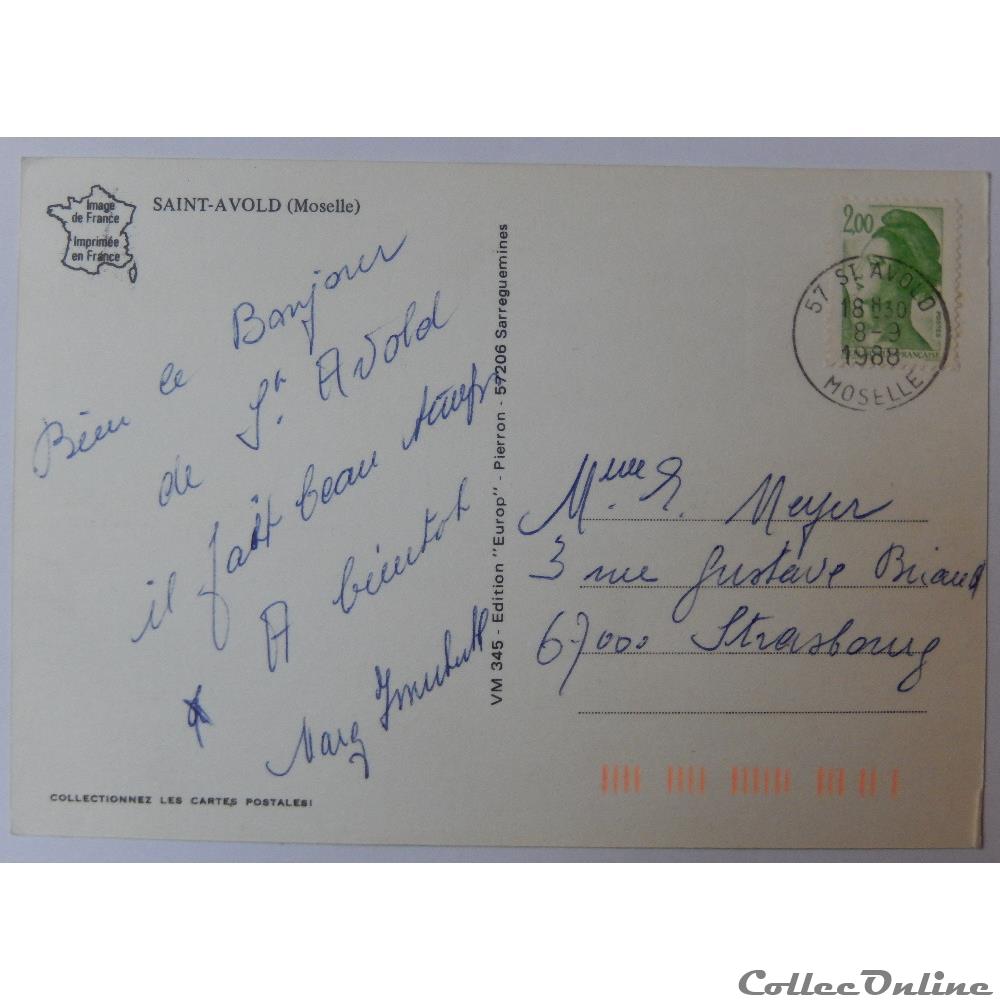 Image
de France
Imprimée
en France
SAINT-AVOLD (Moselle)
Bien le Bonjour
de St. Avold
il fait beau temps
A bientot
Marg
COLLECTIONNEZ LES CARTES POSTALES!
VM 345 - Edition "Europ" - Pierron - 57206 Sarreguemines
2,00
POSTES
FRANÇAISE
57 ST AVOLD
18 H30
8-9
1988
MOSELLE
Mme E. Meyer
3 rue Gustave Briand
67000 Strasbourg
CollecOnline